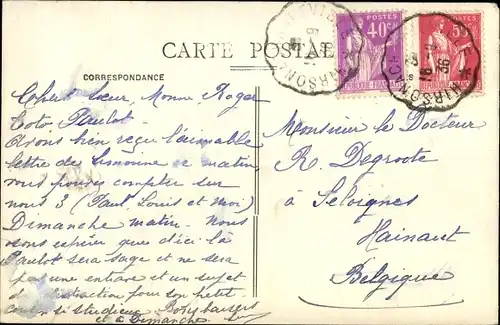 CARTE POSTALE
CORRESPONDANCE
POSTES
40c
REPUBLIQUE FRANÇAISE
POSTES
REPUBLIQUE FRANÇAISE
HIRSON
Roger
Toto. Paulot.
Avons bien reçu l'aimable
lettre de Simonne ce matin,
vous pouvez compter sur
nous 3 (Paul Louis et Moi)
Dimanche matin. Nous
osons espérer que d'ici là
Paulot sera sage et ne sera
pas une entrave et un sujet
de distraction pour son petit
cousin si studieux. Bons baisers
et à Dimanche
Monsieur le Docteur
R. Degroote
à Seloignes
Hainaut
Belgique